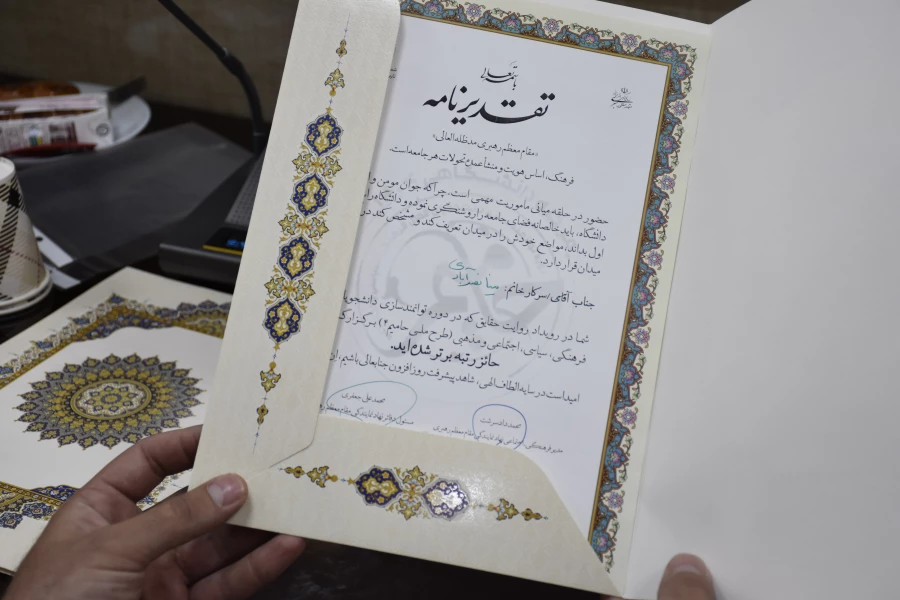 باسمه تعالی
تقدیرنامه
«مقام معظم رهبری مدظله‌العالی»
فرهنگ، اساس هویت و منشأ عمده تحولات هر جامعه است.
حضور در حلقه میانی ماموریت مهمی است، چرا که جوان مومن و
دانشگاه، باید خالصانه فضای جامعه را روشنگری نموده و دانشگاه را
اول بداند، مواضع خودش را در میدان تعریف کند و مشخص کند در
میدان قرار دارد.
جناب آقای/سرکار خانم:
شما در رویداد روایت حقایق که در دوره توانمندسازی دانشجویا
فرهنگی، سیاسی، اجتماعی و مذهبی (طرح ملی حامیم۲) برگزار گر
حائز رتبه برتر شده‌اید.
امید است در سایه الطاف الهی، شاهد پیشرفت روز افزون جنابعالی باشیم.
محمد دادسرشت
مدیر فرهنگی، اجتماعی نهاد نمایندگی مقام معظم رهبری
محمدعلی جعفری
مسئول دفتر نهاد نمایندگی مقام معظم